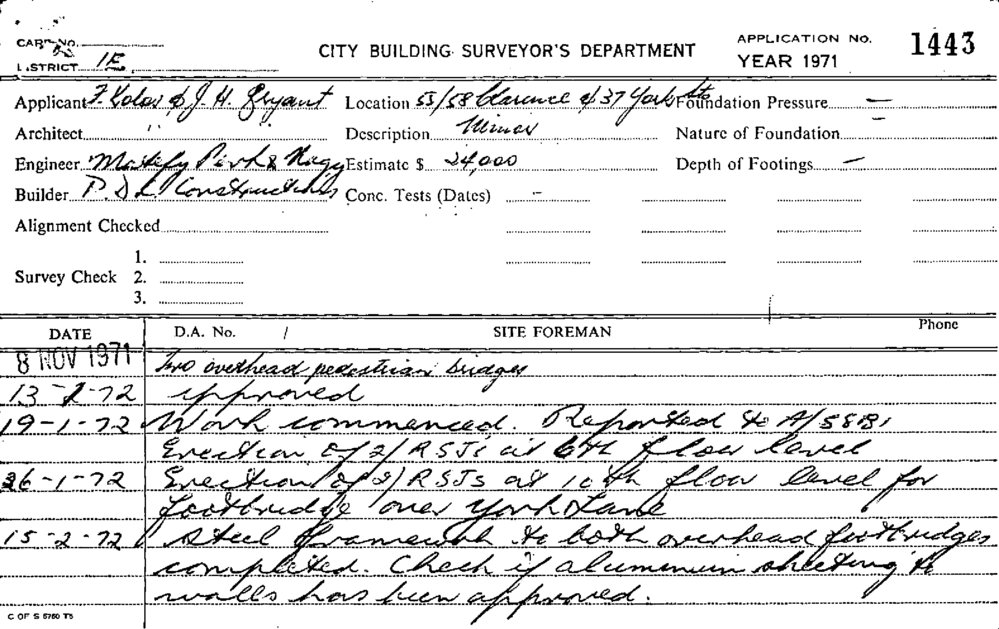 CARD No.
DISTRICT 1E
CITY BUILDING SURVEYOR'S DEPARTMENT
APPLICATION No. 1443
YEAR 1971
Applicant F. Kolos & J. H. Bryant Location 53/58 Clarence & 37 York Sts Foundation Pressure —
Architect " Description Minor Nature of Foundation
Engineer & Nagy Estimate $ 24,000 Depth of Footings —
Builder P.D.L. Constructions Conc. Tests (Dates) –
Alignment Checked
1.
Survey Check 2.
3.
DATE D.A. No. / SITE FOREMAN Phone
8 NOV 1971 Two overhead pedestrian bridges
13-1-72 approved
19-1-72 Work commenced. Reported to A/SSB1
Erection of 2/RSJs at 6th floor level
26-1-72 Erection of 2/RSJs at 10th floor level for
footbridge over York Lane
15-2-72 Steel framework to both overhead footbridges
completed. Check if aluminium sheeting to
walls has been approved.
C OF S 5760 T5